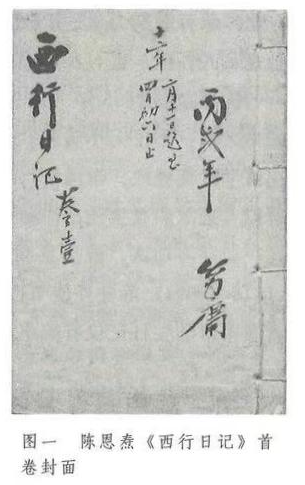 丙戌年
十二年
二月十一日起至
四月初六日止
西行日记
卷壹
图一 陈恩焘《西行日记》首
卷封面